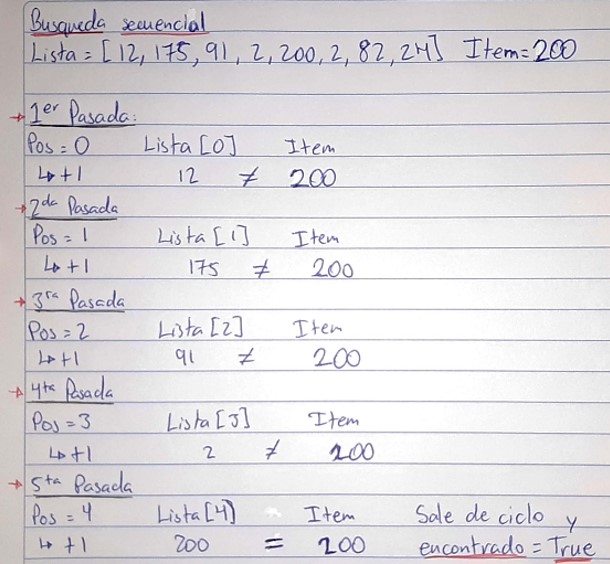 Busqueda secuencial
Lista = [12, 175, 91, 2, 200, 2, 82, 24] Item = 200
→ 1er Pasada:
Pos = 0 Lista [0] Item
↳ +1 12 ≠ 200
→ 2da Pasada
Pos = 1 Lista [1] Item
↳ +1 175 ≠ 200
→ 3ra Pasada
Pos = 2 Lista [2] Item
↳ +1 91 ≠ 200
→ 4ta Pasada
Pos = 3 Lista [3] Item
↳ +1 2 ≠ 200
→ 5ta Pasada
Pos = 4 Lista [4] Item Sale de ciclo y
↳ +1 200 = 200 encontrado = True